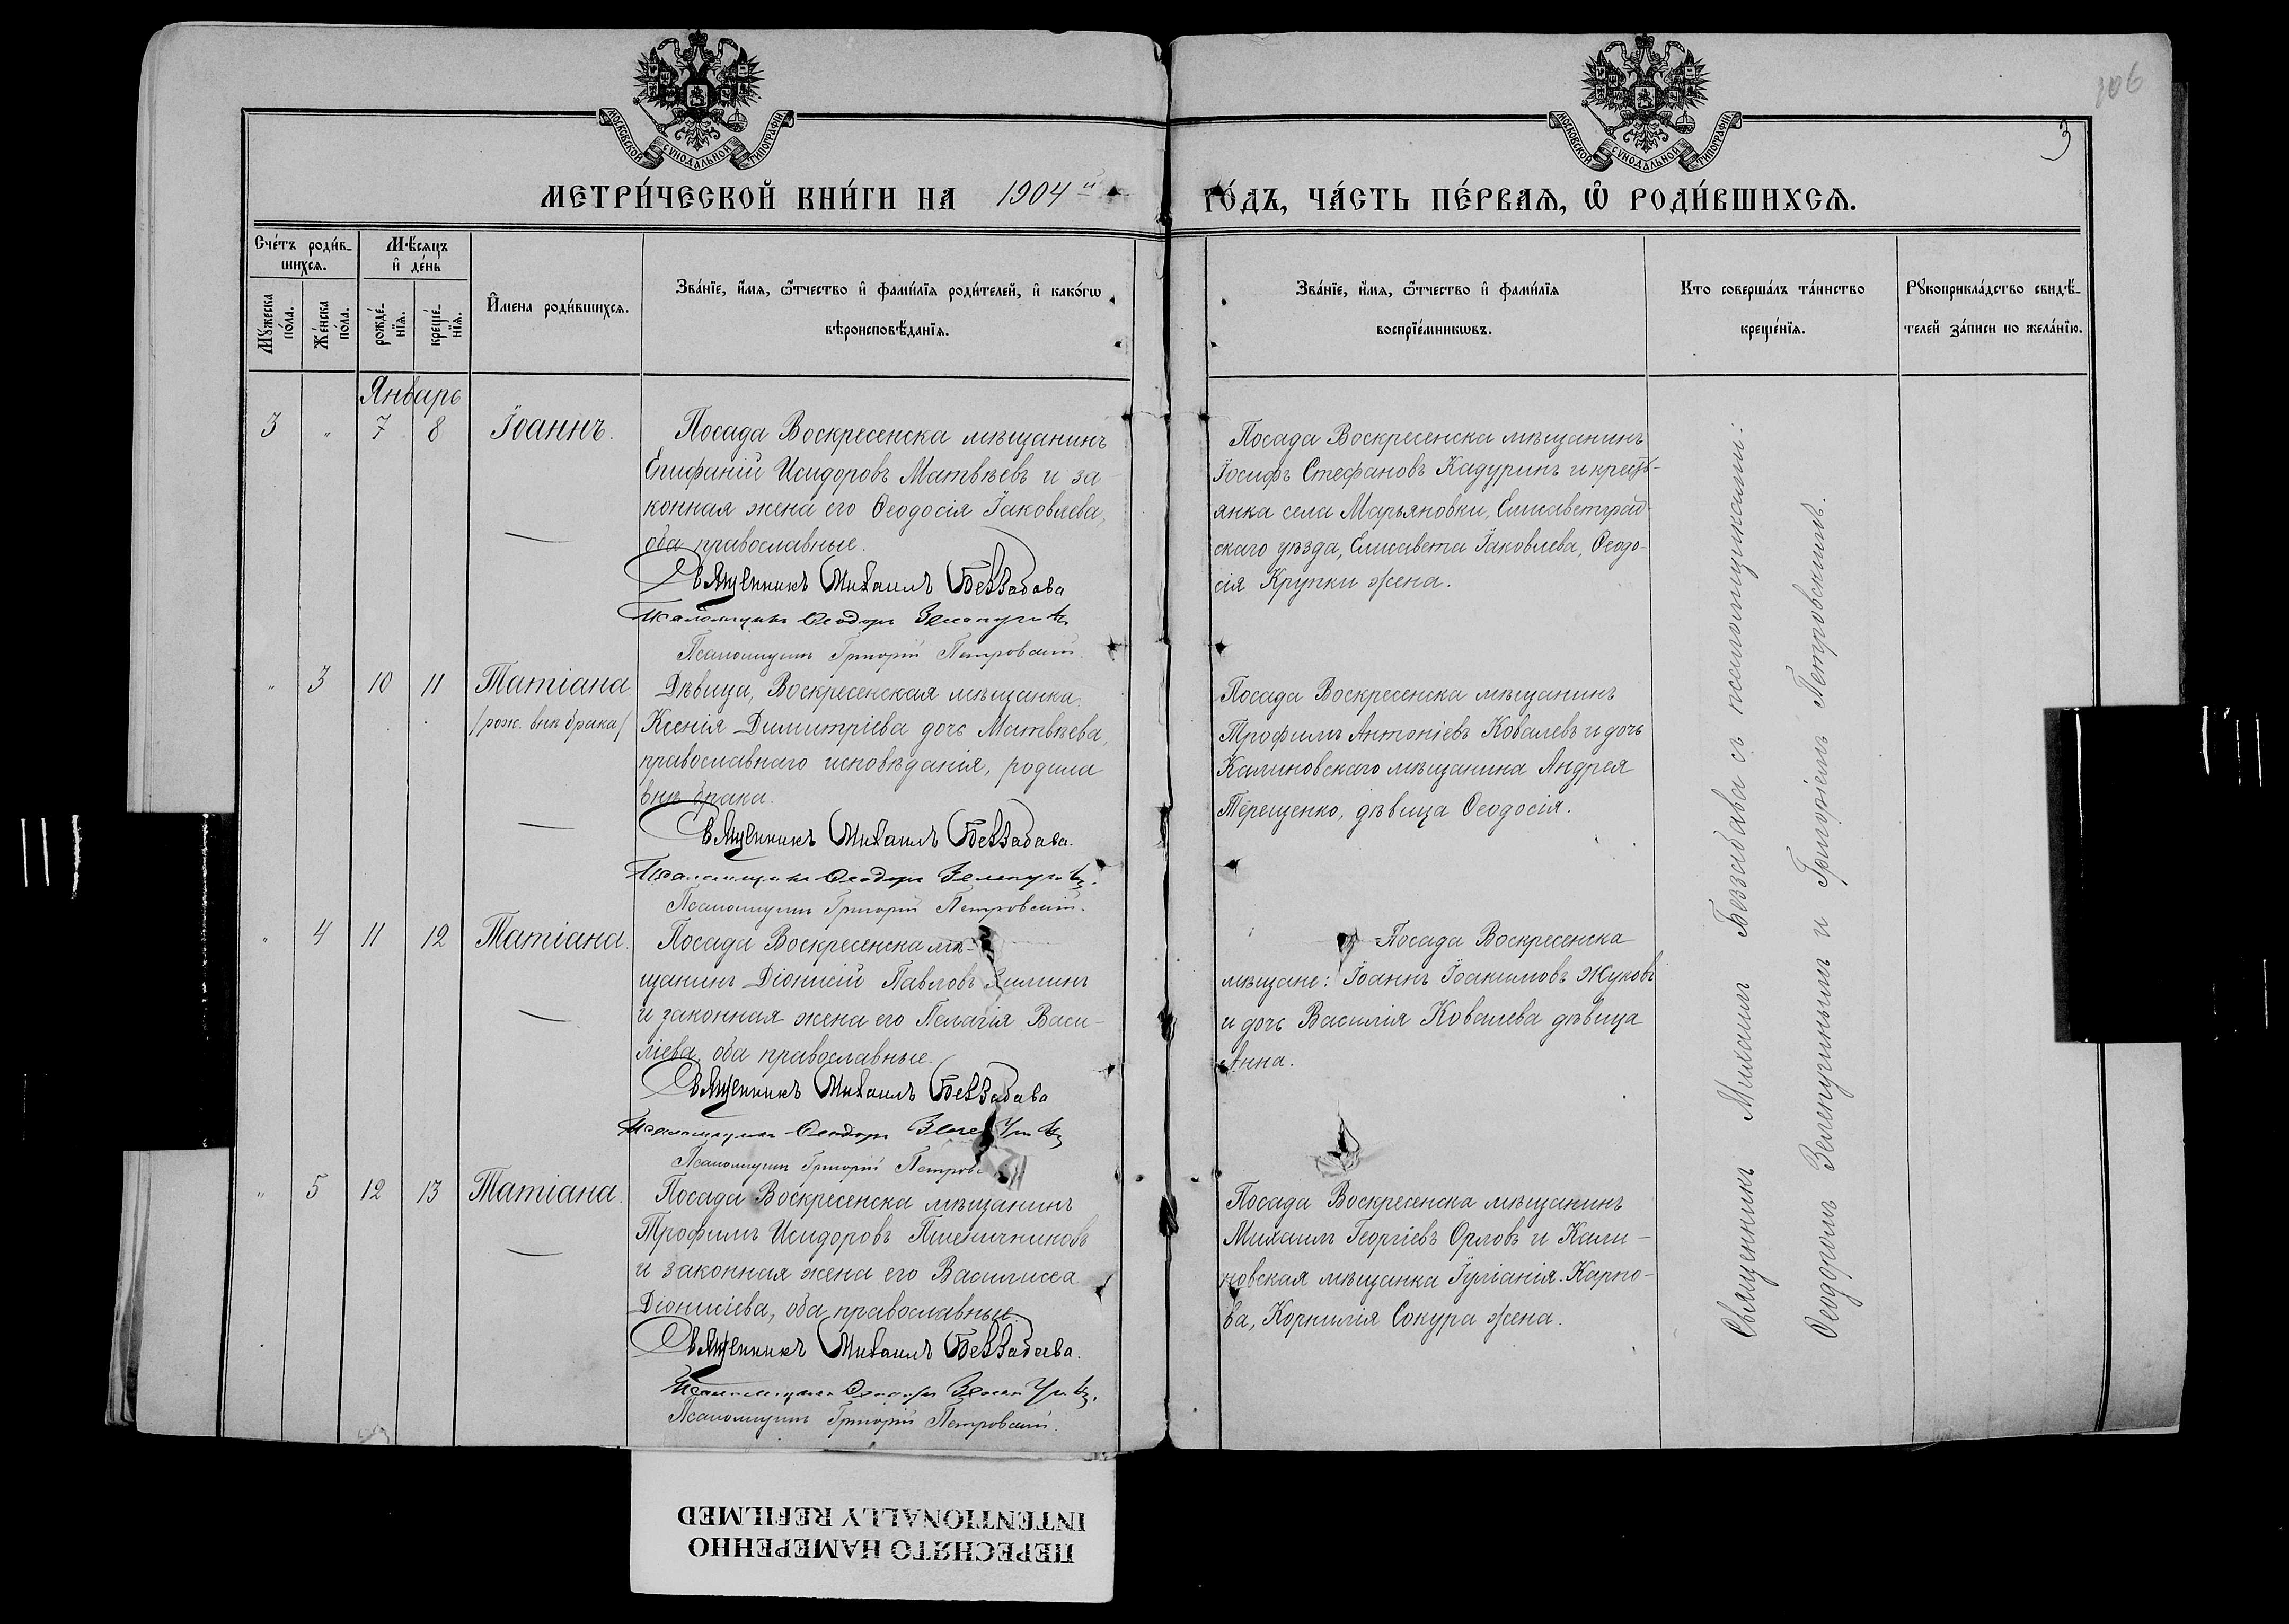 106
3
МОСКОВСКОЙ СѴНОДАЛЬНОЙ ТИПОГРАФІИ
МОСКОВСКОЙ СѴНОДАЛЬНОЙ ТИПОГРАФІИ
МЕТРИ́ЧЕСКОЙ КНИ́ГИ НА 1904й го́дъ, ча́сть пе́рвая, ѡ҆ роди́вшихся.
Сче́тъ роди́вшихся.
Мꙋ́жеска по́ла.
Же́нска по́ла.
Мѣ́сяцъ и҆ де́нь
рожде́нїя.
креще́нїя.
И҆мена роди́вшихся.
Зва́нїе, и҆́мя, ѻ҆́тчество и҆ фами́лїя роди́телей, и҆ како́гѡ
вѣроисповѣ́данїя.
Зва́нїе, и҆́мя, ѻ҆́тчество и҆ фами́лїя
воспрїе́мникѡвъ.
Кто соверша́лъ та́инство
креще́нїя.
Рꙋкоприкла́дство свидѣ́-
телей за́писи по жела́нїю.
Январь
3 " 7 8 Іоаннъ.
Посада Воскресенска мѣщанинъ
Епифаній Исидоровъ Матвѣевъ и за-
конная жена его Ѳеодосія Іаковлева,
оба православные.
Священникъ Михаилъ Беззабава
Псаломщикъ Ѳеодоръ Зеленугинъ
Псаломщикъ Григорій Петровскій.
Посада Воскресенска мѣщанинъ
Іосифъ Стефановъ Кадуринъ и кресть-
янка села Марьяновки, Елисаветград-
скаго уѣзда, Елисавета Іаковлева, Ѳеодо-
сія Крупки жена.
" 3 10 11 Татіана.
/рож. внѣ брака/
Дѣвица, Воскресенская мѣщанка
Ксенія Димитріева дочь Матвѣева,
православнаго исповѣданія, родила
внѣ брака.
Священникъ Михаилъ Беззабава.
Псаломщикъ Ѳеодоръ Зеленугинъ.
Псаломщикъ Григорій Петровскій.
Посада Воскресенска мѣщанинъ
Трофимъ Антоніевъ Ковалевъ и дочь
Калиновскаго мѣщанина Андрея
Терещенко, дѣвица Ѳеодосія.
" 4 11 12 Татіана.
Посада Воскресенска мѣ-
щанинъ Діонисій Павловъ
и законная жена его Пелагія Васи-
ліева, оба православные.
Священникъ Михаилъ Беззабава
Псаломщикъ Ѳеодоръ
Псаломщикъ Григорій
Посада Воскресенска
мѣщане: Іоаннъ Іоакимовъ Жуковъ
и дочь Василія Ковалева дѣвица
Анна.
" 5 12 13 Татіана.
Посада Воскресенска мѣщанинъ
Трофимъ Исидоровъ Пшеничниковъ
и законная жена его Василисса
Діонисіева, оба православные.
Священникъ Михаилъ Беззабава.
Псаломщикъ Ѳеодоръ Зеленугинъ.
Псаломщикъ Григорій Петровскій.
Посада Воскресенска мѣщанинъ
Михаилъ Георгіевъ Орловъ и Кали-
новская мѣщанка Іуліанія Карпо-
ва, Корнилія Сокура жена.
Священникъ Михаилъ Беззабава съ псаломщиками:
Ѳеодоромъ Зеленугинымъ и Григоріемъ Петровскимъ.
ПЕРЕСНЯТО НАМЕРЕННО
INTENTIONALLY REFILMED